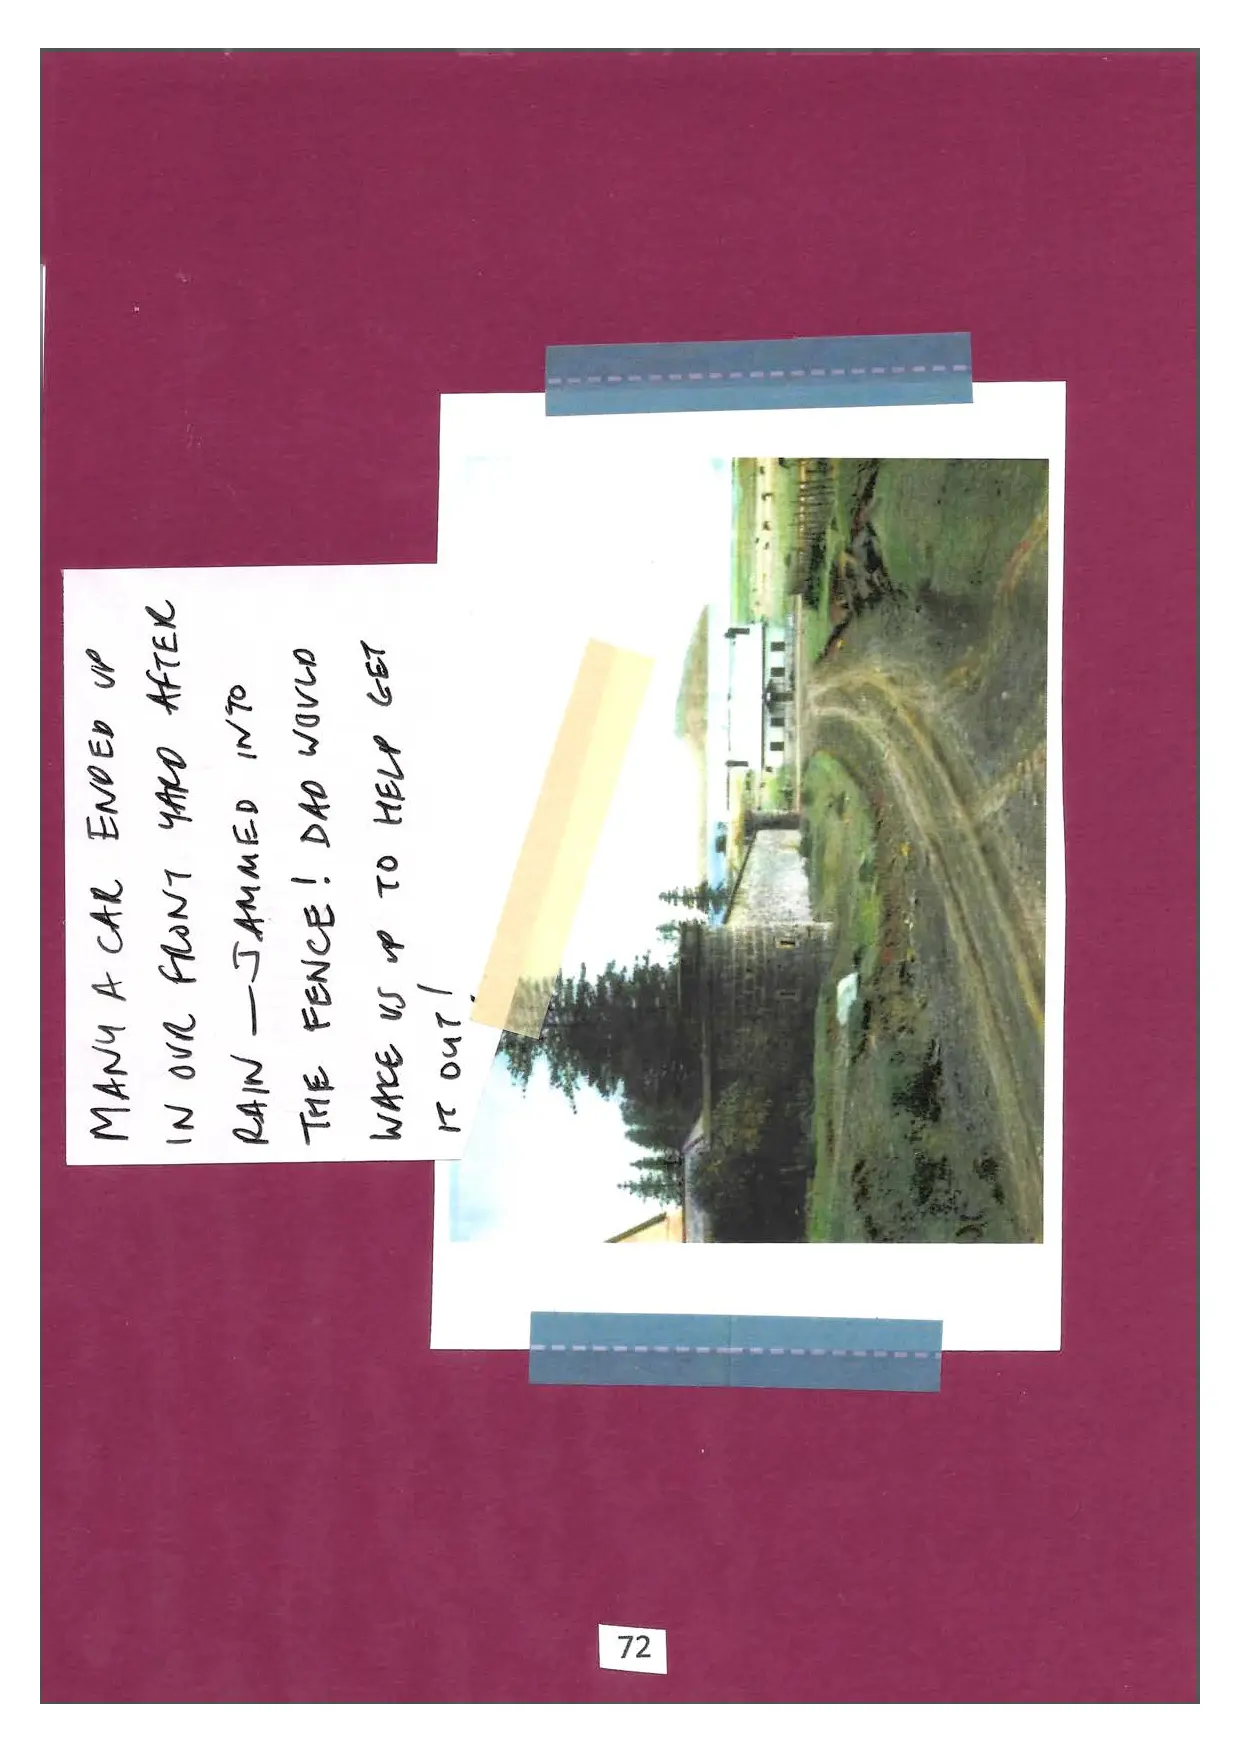 MANY A CAR ENDED UP
IN OUR FRONT YARD AFTER
RAIN — JAMMED INTO
THE FENCE! DAD WOULD
WAKE US UP TO HELP GET
IT OUT!
72